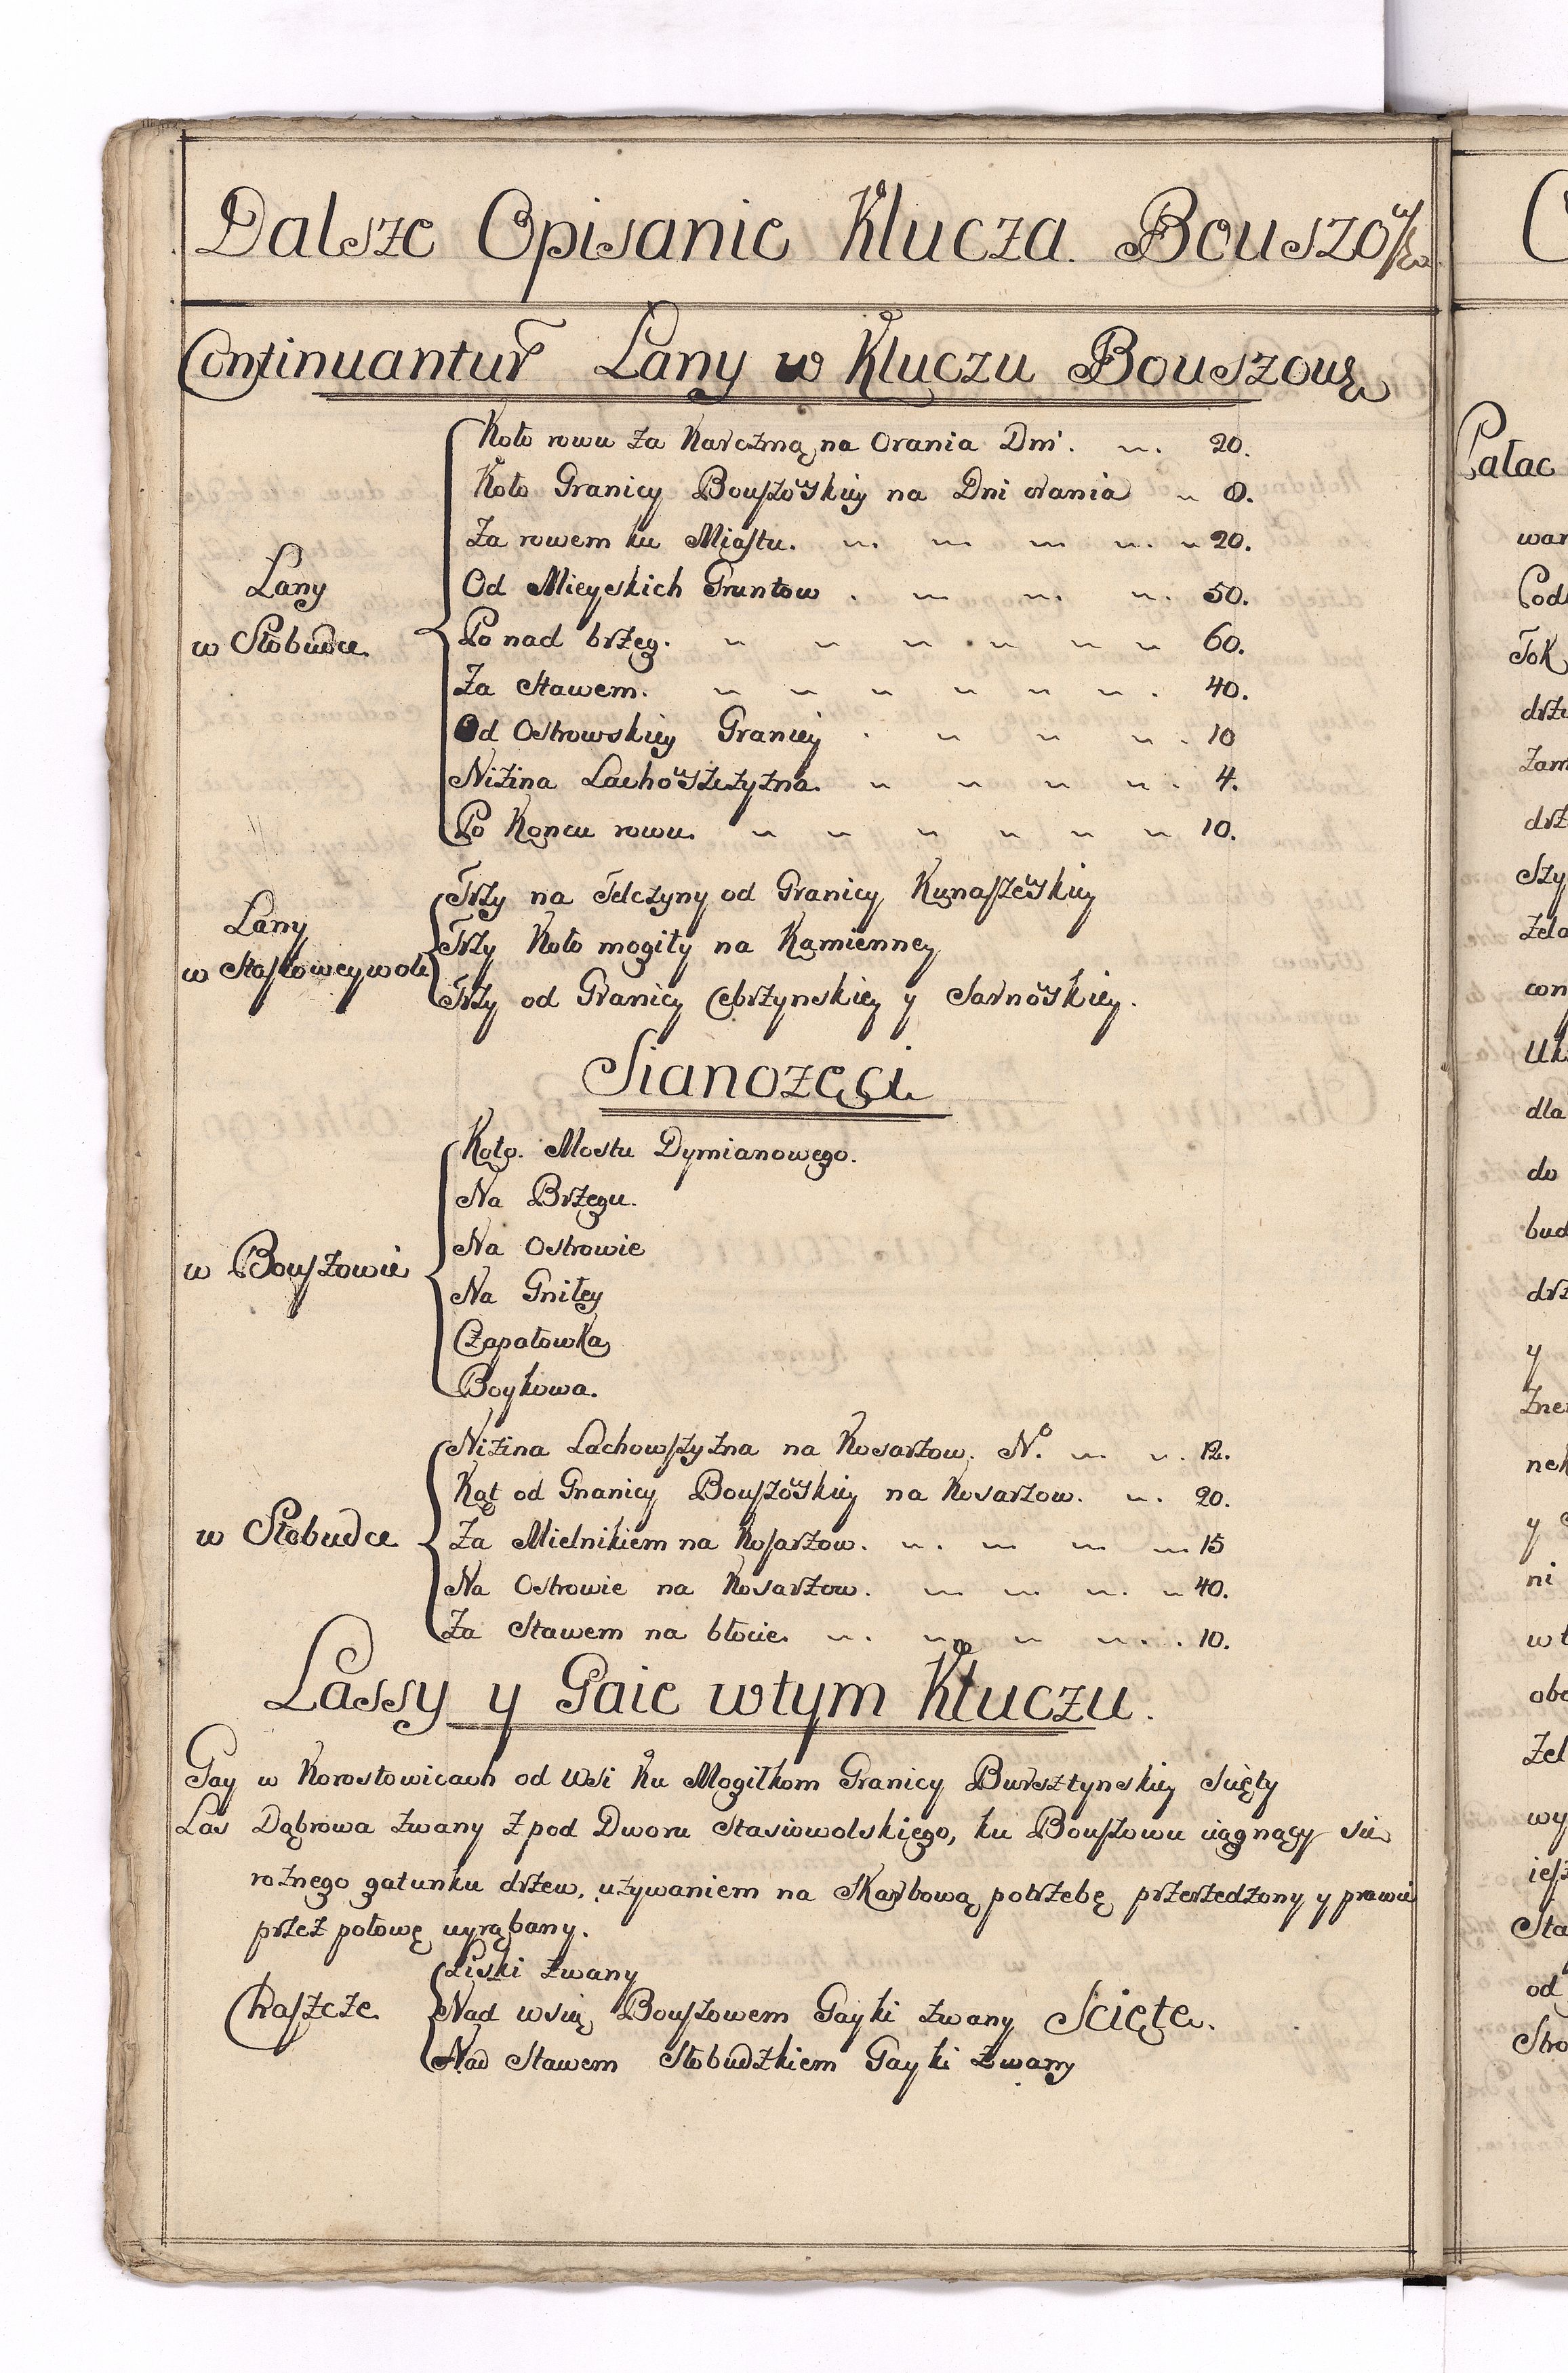 Dalsze Opisanie Klucza. Bouszowskgo
Continuantur Lany w Kluczu Bouszowę
Koło rowu za Karczmą na Orania Dni. 20.
Koło Granicy Bouszowskiey na Dni orania 8.
Za rowem ku Miastu. 20.
Od Mieyskich Gruntow. 50.
Lany
w Słobudce
Po nad brzeg. 60.
Za Stawem. 40.
Od Ostrowskiey Granicy. 10
Nizina Lachowszczyzna. 4.
Po Koncu rowu. 10.
Trzy na Telczyny od Granicy Kunaszewskiey
Lany
w Stasiowey woli
Trzy Koło mogiły na Kamienney
Trzy od Granicy Cebrzynskiey y Sarnowskiey.
Sianozęci
Koło. Mostu Dymianowego.
Na Brzegu.
Na Ostrowie
w Bouszowie
Na Gniłey
Czapałowka
Boykowa.
Nizina Lachowszyzna na Kosarzow. No. 12.
Kąt od Gnanicy Bouszowskiey na Kosarzow. 20.
w Słobudce
Za Mielnikiem na Kosarzow. 15
Na Ostrowie na Kosarzow. 40.
Za Stawem na błocie. 10.
Lassy y Gaie w tym Kluczu.
Gay w Korostowicach od Wsi Ku Mogiłkom Granicy Bursztynskiey scięty
Las Dąbrowa zwany z pod Dworu Stasiowolskiego, ku Bouszowu ciągnący się
roznego gatunku drzew, uzywaniem na Skarbową potrzebę przerzedzony y prawie
przez połowę wyrąbany.
Liski zwany
Chaszcze
Nad wsią Bouszowem Gayki zwany Scięte.
Nad Stawem Słobudzkiem Gayki zwany
Pałac